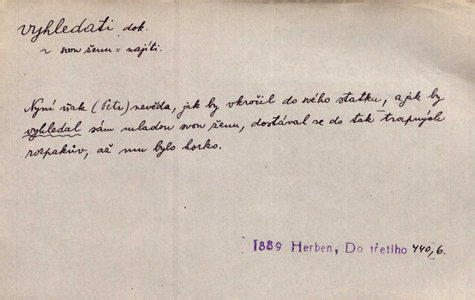 vyhledati dok.
~ svou ženu = najíti.
Nyní však (Petr) nevěda, jak by vkročil do svého statku, a jak by
vyhledal sám mladou svou ženu, dostával se do tak trapných
rozpakův, až mu bylo horko.
1889 Herben, Do třetího 440,6.